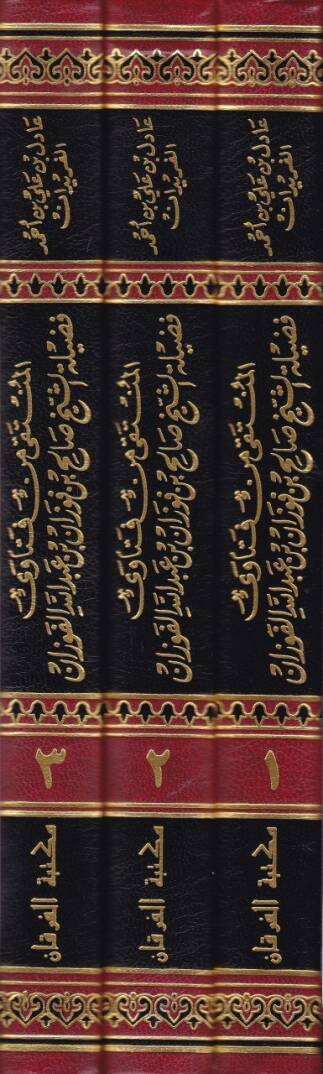 عادل بن علي بن أحمد
الفريدان
المنتقى من فتاوى
فضيلة الشيخ صالح بن فوزان بن عبد الله الفوزان
١
مكتبة الفرقان
عادل بن علي بن أحمد
الفريدان
المنتقى من فتاوى
فضيلة الشيخ صالح بن فوزان بن عبد الله الفوزان
٢
مكتبة الفرقان
عادل بن علي بن أحمد
الفريدان
المنتقى من فتاوى
فضيلة الشيخ صالح بن فوزان بن عبد الله الفوزان
٣
مكتبة الفرقان